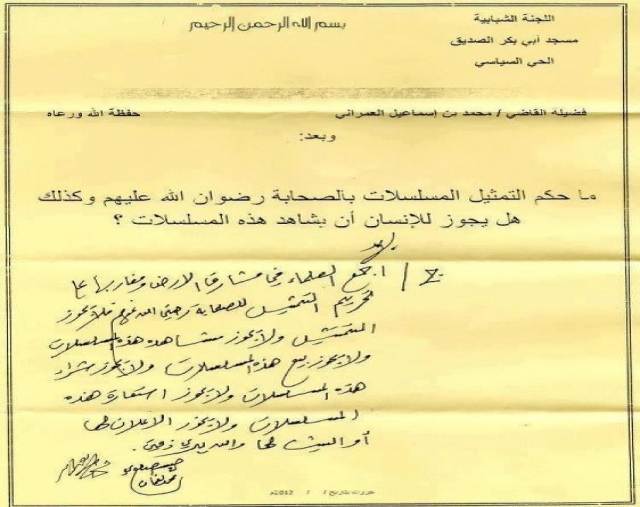 اللجنة الشبابية
مسجد أبي بكر الصديق
الحي السياسي
بسم الله الرحمن الرحيم
فضيلة القاضي / محمد بن إسماعيل العمراني حفظة الله ورعاه
وبعد:
ما حكم التمثيل المسلسلات بالصحابة رضوان الله عليهم وكذلك
هل يجوز للإنسان أن يشاهد هذه المسلسلات ؟
ج / أجمع العلماء في مشارق الارض ومغاربها على
تحريم التمثيل للصحابة رضي الله عنهم فلا يجوز
التمثيل ولا يجوز مشاهدة هذه المسلسلات
ولا يجوز بيع هذه المسلسلات ولا يجوز شراء
هذه المسلسلات ولا يجوز استعارة هذه
المسلسلات ولا يجوز الاعلان لها
أو البث لها والله
حررت بتاريخ / / 2012م